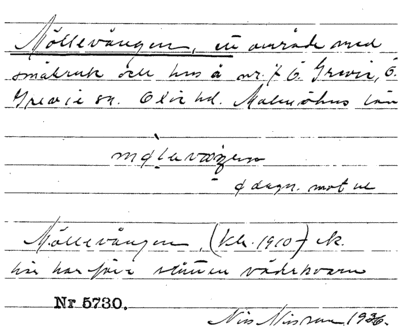 Möllevången, ett område med
småbruk och hus å nr. 7 Ö. Grevie, Ö.
Grevie sn. Oxie hd. Malmöhus län
möllevången
mot
Möllevången, (Kbr. 1910) 
här har förr stått en väderkvarn
Nr 5730.
Nils Nilsson 1936.